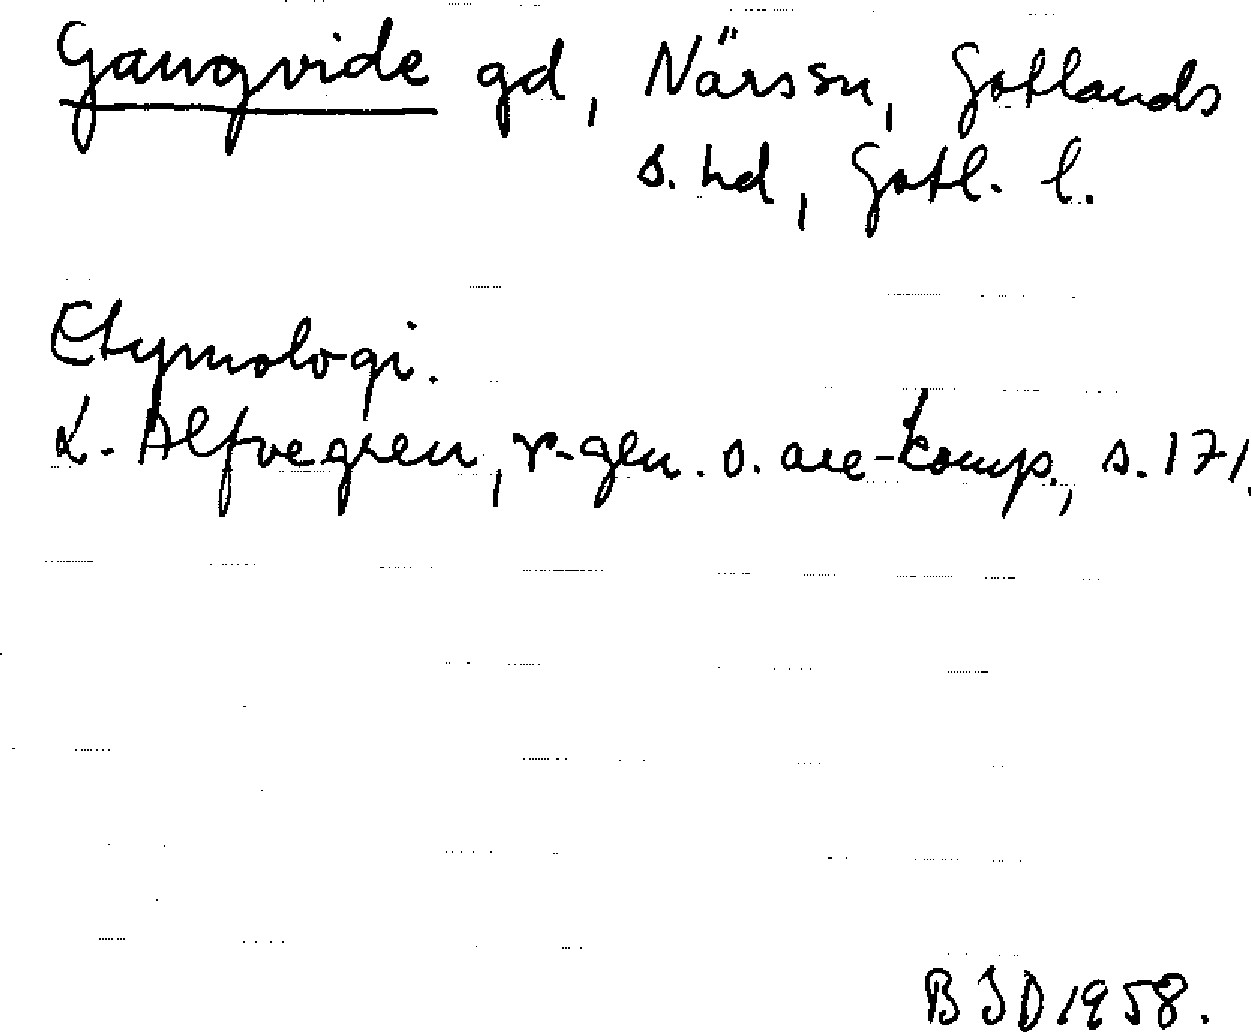 Gangvide gd, När sn, Gotlands
s. hd, Gotl. l.
Etymologi.
L. Alfvegren, r-gen. o. are-komp., s. 171.
BJD 1958.